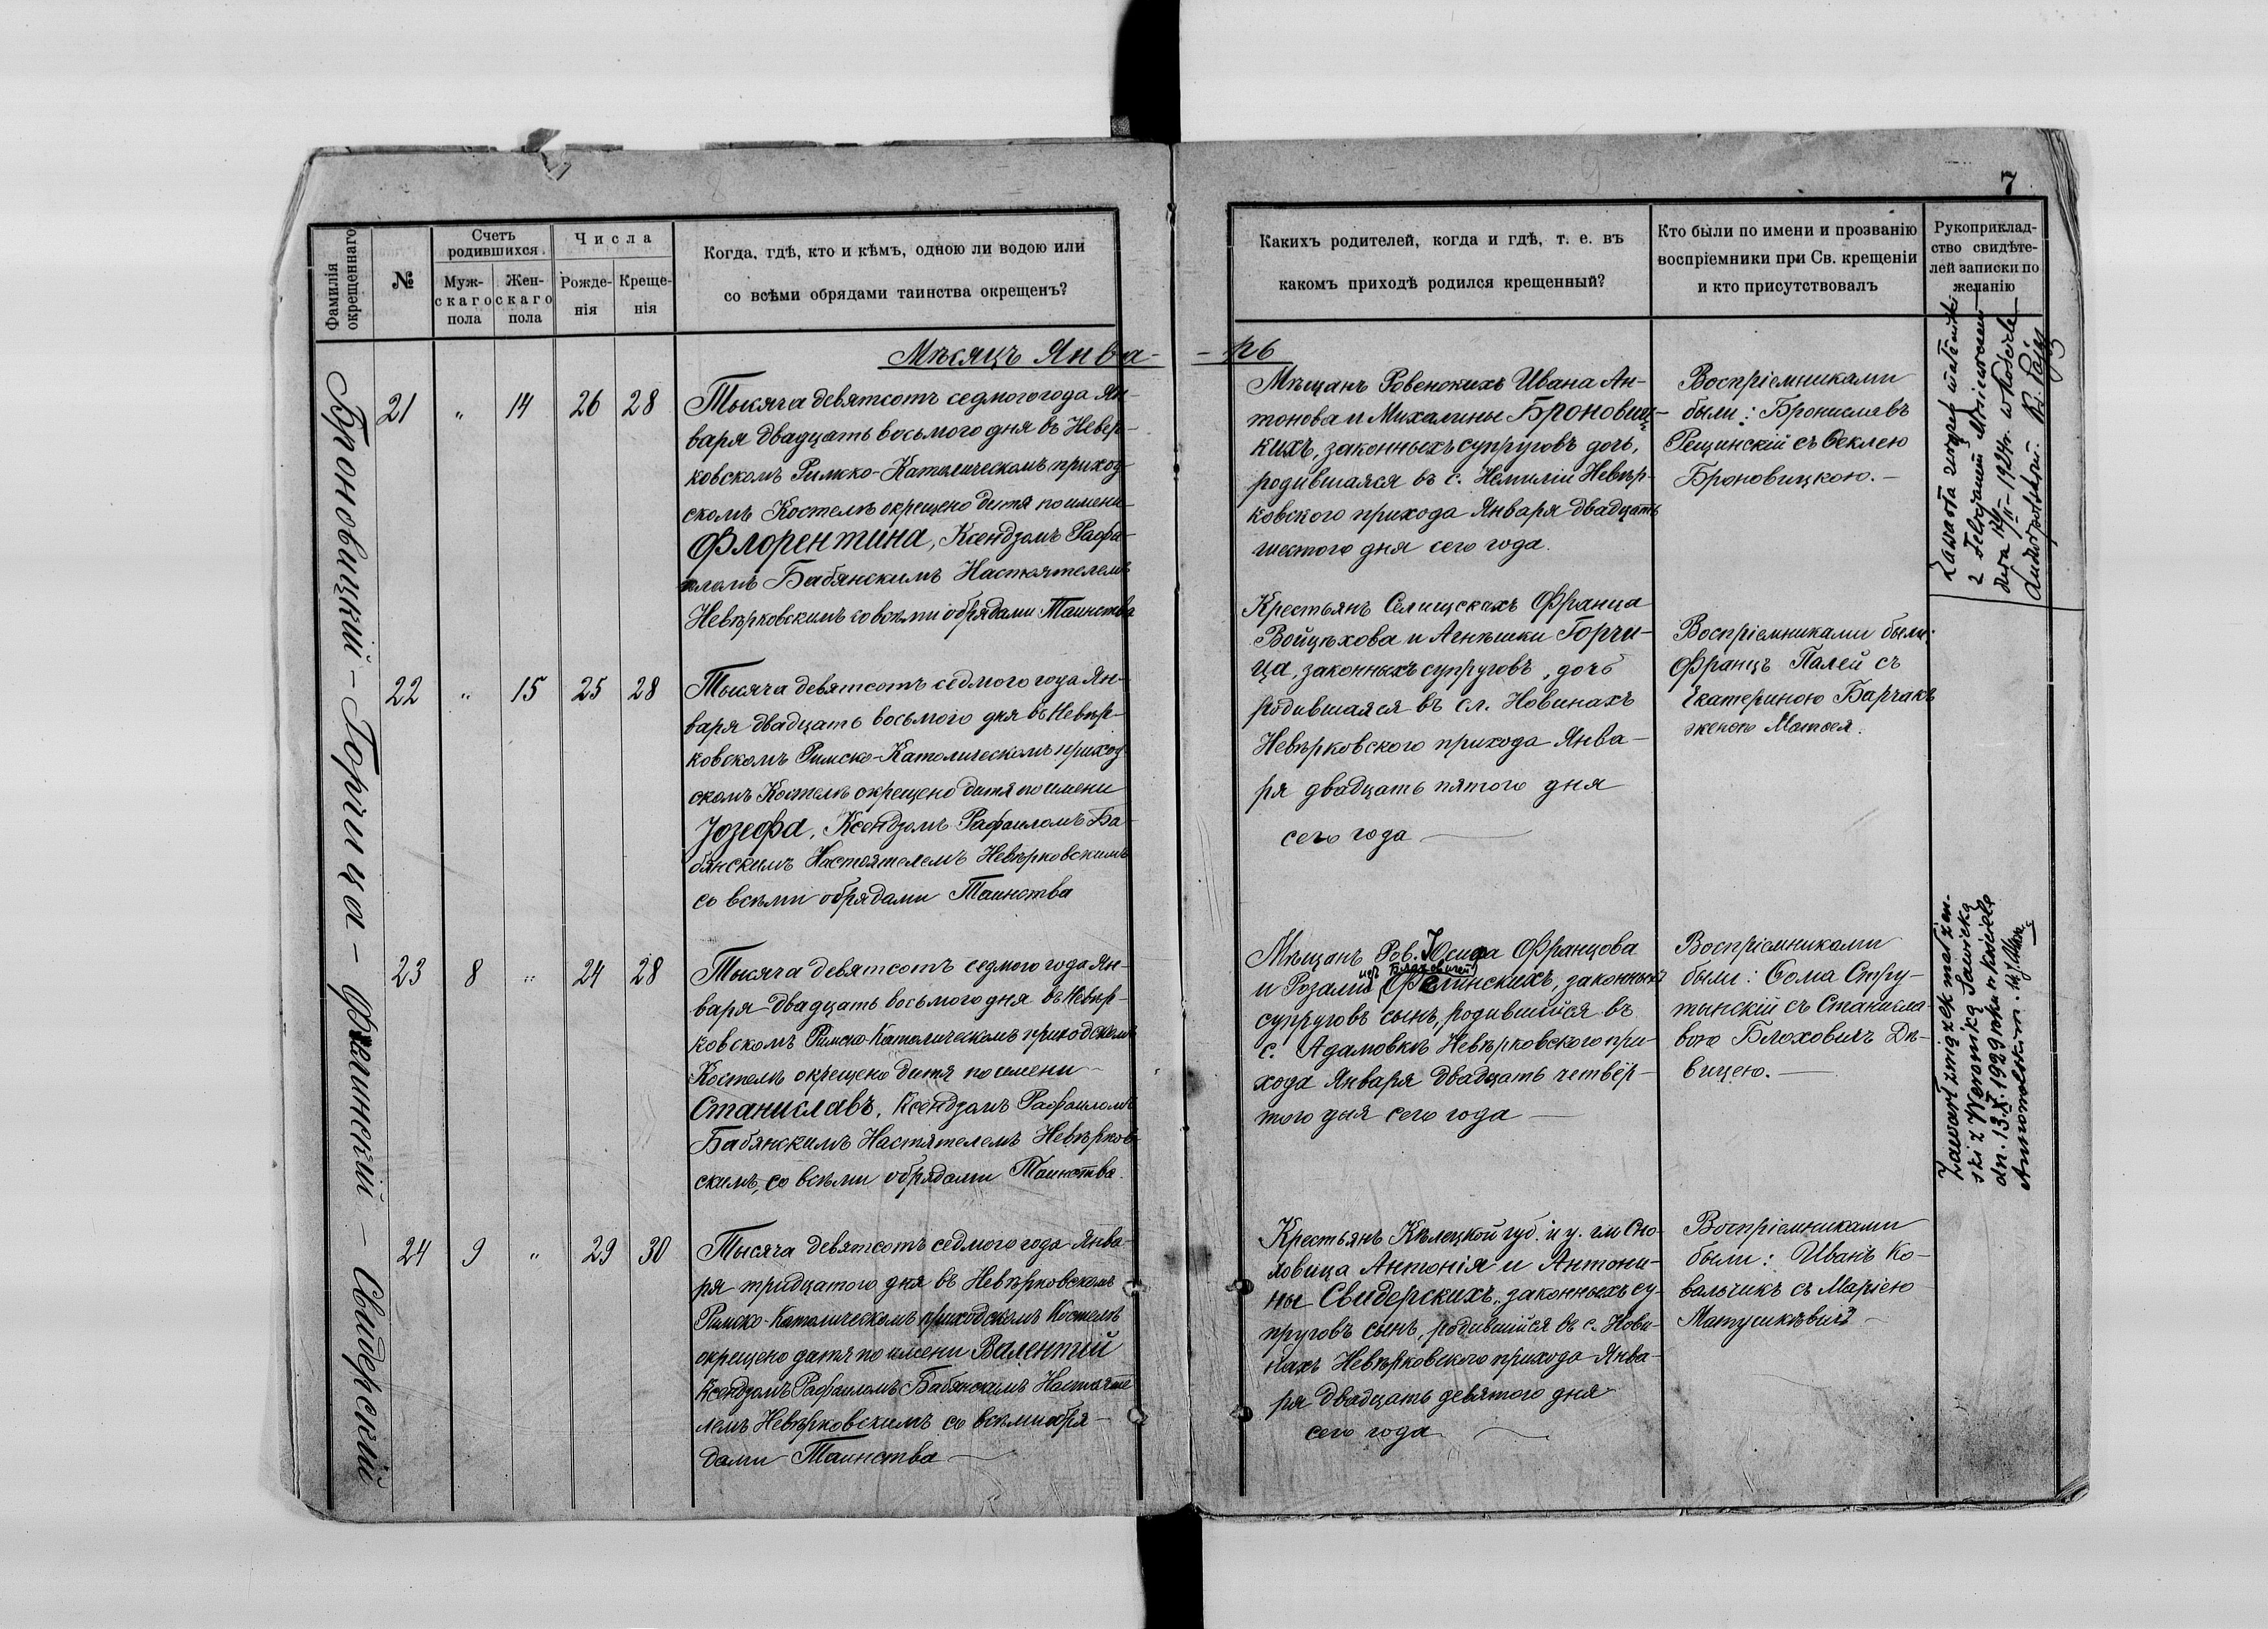 7
Фамилія
окрещеннаго
№
Счетъ
родившихся
Муж-
скаго
пола
Жен-
скаго
пола
Числа
Рожде-
нія
Креще-
нія
Когда, гдѣ, кто и кѣмъ, одною ли водою или
со всѣми обрядами таинства окрещенъ?
Какихъ родителей, когда и гдѣ, т. е. въ
какомъ приходѣ родился крещенный?
Кто были по имени и прозванію
воспріемники при Св. крещеніи
и кто присутствовалъ
Рукоприклад-
ство свидѣте-
лей записки по
желанію
Мѣсяцъ Янва-
-рь
Броновицкій - Горчица - Фелинскій - Свидерскій
21 " 14 26 28
Тысяча девятсотъ седмого года Ян-
варя двадцать восьмого дня въ Невер-
ковскомъ Римско-Католическомъ приход-
скомъ Костелѣ окрещено дитя по имени
Флорентина, Ксендзомъ Рафа-
иломъ Бабянскимъ Настоятелемъ
Невѣрковскимъ со всѣми обрядами Таинства
Мѣщанъ Ровенскихъ Ивана Ан-
тонова и Михалины Броновиц-
кихъ, законныхъ супруговъ дочь,
родившаяся въ с. Немиліи Невѣр-
ковского прихода Января двадцать
шестого дня сего года.
Воспріемниками
были: Брониславъ
Рещинскій съ Феклею
Броновицкою. -
22 " 15 25 28
Тысяча девятсотъ седмого года Ян-
варя двадцать восьмого дня въ Невѣр-
ковскомъ Римско-Католическомъ приход-
скомъ Костелѣ окрещено дитя по имени
Јозефа, Ксендзомъ Рафаиломъ Ба-
бянскимъ Настоятелемъ Невѣрковскимъ
со всѣми обрядами Таинства
Крестьянъ Селищскахъ Франца
Войцѣхова и Агнѣшки Горчи-
ца, законныхъ супруговъ, дочь
родившаяся въ сл. Новинахъ
Невѣрковского прихода Янва-
ря двадцать пятого дня
сего года
Воспріемниками были:
Францъ Палей съ
Екатериною Барчакъ
женою Матѳея.
23 8 " 24 28
Тысяча девятсотъ седмого года Ян-
варя двадцать восьмого дня въ Невѣр-
ковскомъ Римско-Католическомъ приходскомъ
Костелѣ окрещено дитя по имени
Станиславъ, Ксендзомъ Рафаиломъ
Бабянскимъ Настятелемъ Невѣрков-
скимъ, со всѣми обрядами Таинства.
Мѣщанъ Ров. Юсифа Францова
и Розаліи Фелинскихъ, законныхъ
супруговъ сынъ, родившійся въ
с. Адамовкѣ Невѣрковского при-
хода Января двадцать четвёр-
того дня сего года
Воспріемниками
были: Ѳома Стру-
тынскій съ Станисла-
вою Блоховичъ Дѣ-
вицею. -
24 9 " 29 30
Тысяча девятсотъ седмого года Янва-
ря тридцатого дня въ Невѣрковскомъ
Римско-Католическомъ приходскомъ Костелѣ
окрещено дитя по имени Валентій
Ксендзомъ Рафаиломъ Бабянскимъ Настояте
лемъ Невѣрковскимъ со всѣми обря-
дами Таинства
Крестьянъ Кѣлецкой губ. и у. гм Сно-
ховица Антонія и Антони-
ны Свидерскихъ, законныхъ су-
пруговъ сынъ, родившійся въ с. Нови-
нахъ Невѣрковского прихода Янва-
ря двадцать девятого дня
сего года
Воспріемниками
были: Иванъ Ко-
вальчикъ съ Маріею
Матусикѣвичъ
Zawarła związek małżeński
z Felicjanem
dnia 14/II-1924 r. w Kościele
Ludwipolskim. Ks.
Zawarł związek małżen-
ski z Weroniką Sawicką
dn. 13.X.1929 roku w kościele
Annowolskim.